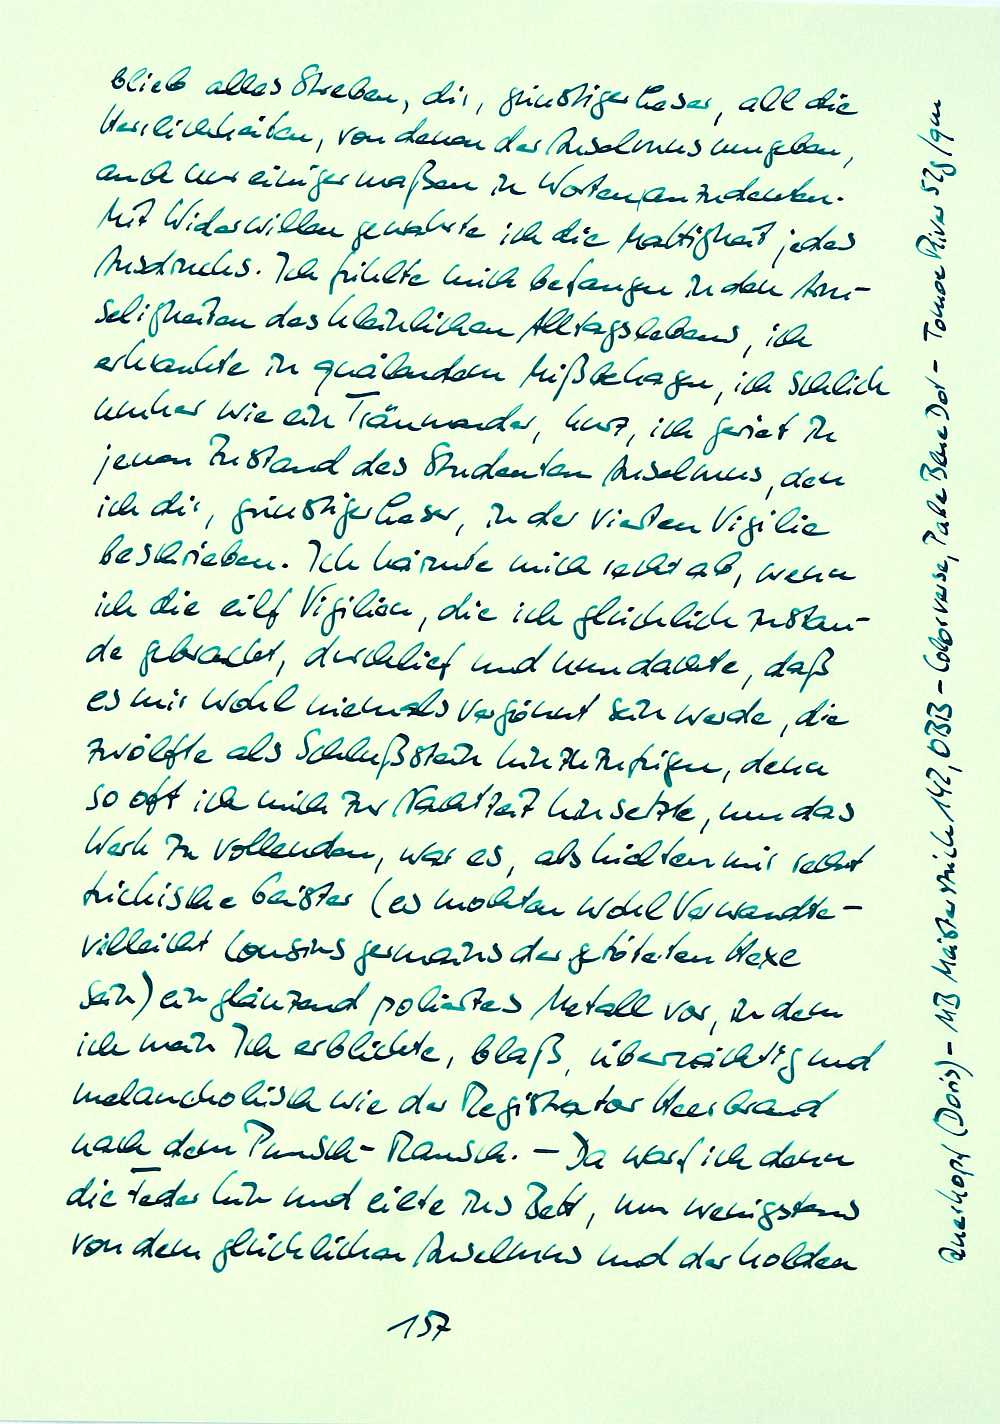 blieb alles Streben, dir, günstiger Leser, all die
Herrlichkeiten, von denen der Anselmus umgeben,
auch nur einigermaßen in Worten anzudeuten.
Mit Widerwillen gewahrte ich die Mattigkeit jedes
Ausdrucks. Ich fühlte mich befangen in den Arm-
seligkeiten des kleinlichen Alltagslebens, ich
erkrankte in quälendem Mißbehagen, ich schlich
umher wie ein Träumender, kurz, ich geriet in
jenen Zustand des Studenten Anselmus, den
ich dir, günstiger Leser, in der vierten Vigilie
beschrieben. Ich härmte mich recht ab, wenn
ich die eilf Vigilien, die ich glücklich zustan-
de gebracht, durchlief und nun dachte, daß
es mir wohl niemals vergönnt sein werde, die
zwölfte als Schlußstein hinzuzufügen, denn
so oft ich mich zur Nachtzeit hinsetzte, um das
Werk zu vollenden, war es, als hielten mir recht
tückische Geister (es mochten wohl Verwandte-
vielleicht Cousins germains der getöteten Hexe
sein) ein glänzend poliertes Metall vor, in dem
ich mein Ich erblickte, blaß, übernächtig und
melancholisch wie der Registrator Heerbrand
nach dem Punsch-Rausch. - Da warf ich denn
die Feder hin und eilte ins Bett, um wenigstens
von dem glücklichen Anselmus und der holden
157
(Doris) - MB Meisterstück 142, OBB - Colorverse, Pale Blue Dot - Tomoe River 52g/qm